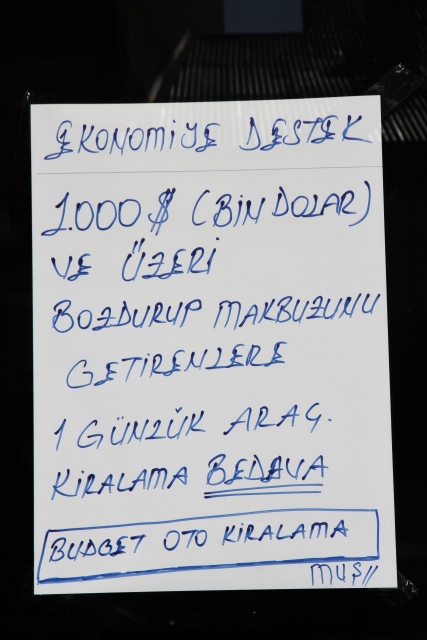 EKONOMİYE DESTEK
1.000 $ (BİN DOLAR)
VE ÜZERİ
BOZDURUP MAKBUZUNU
GETİRENLERE
1 GÜNLÜK ARAÇ.
KİRALAMA BEDAVA
BUDGET OTO KİRALAMA
MUŞ//